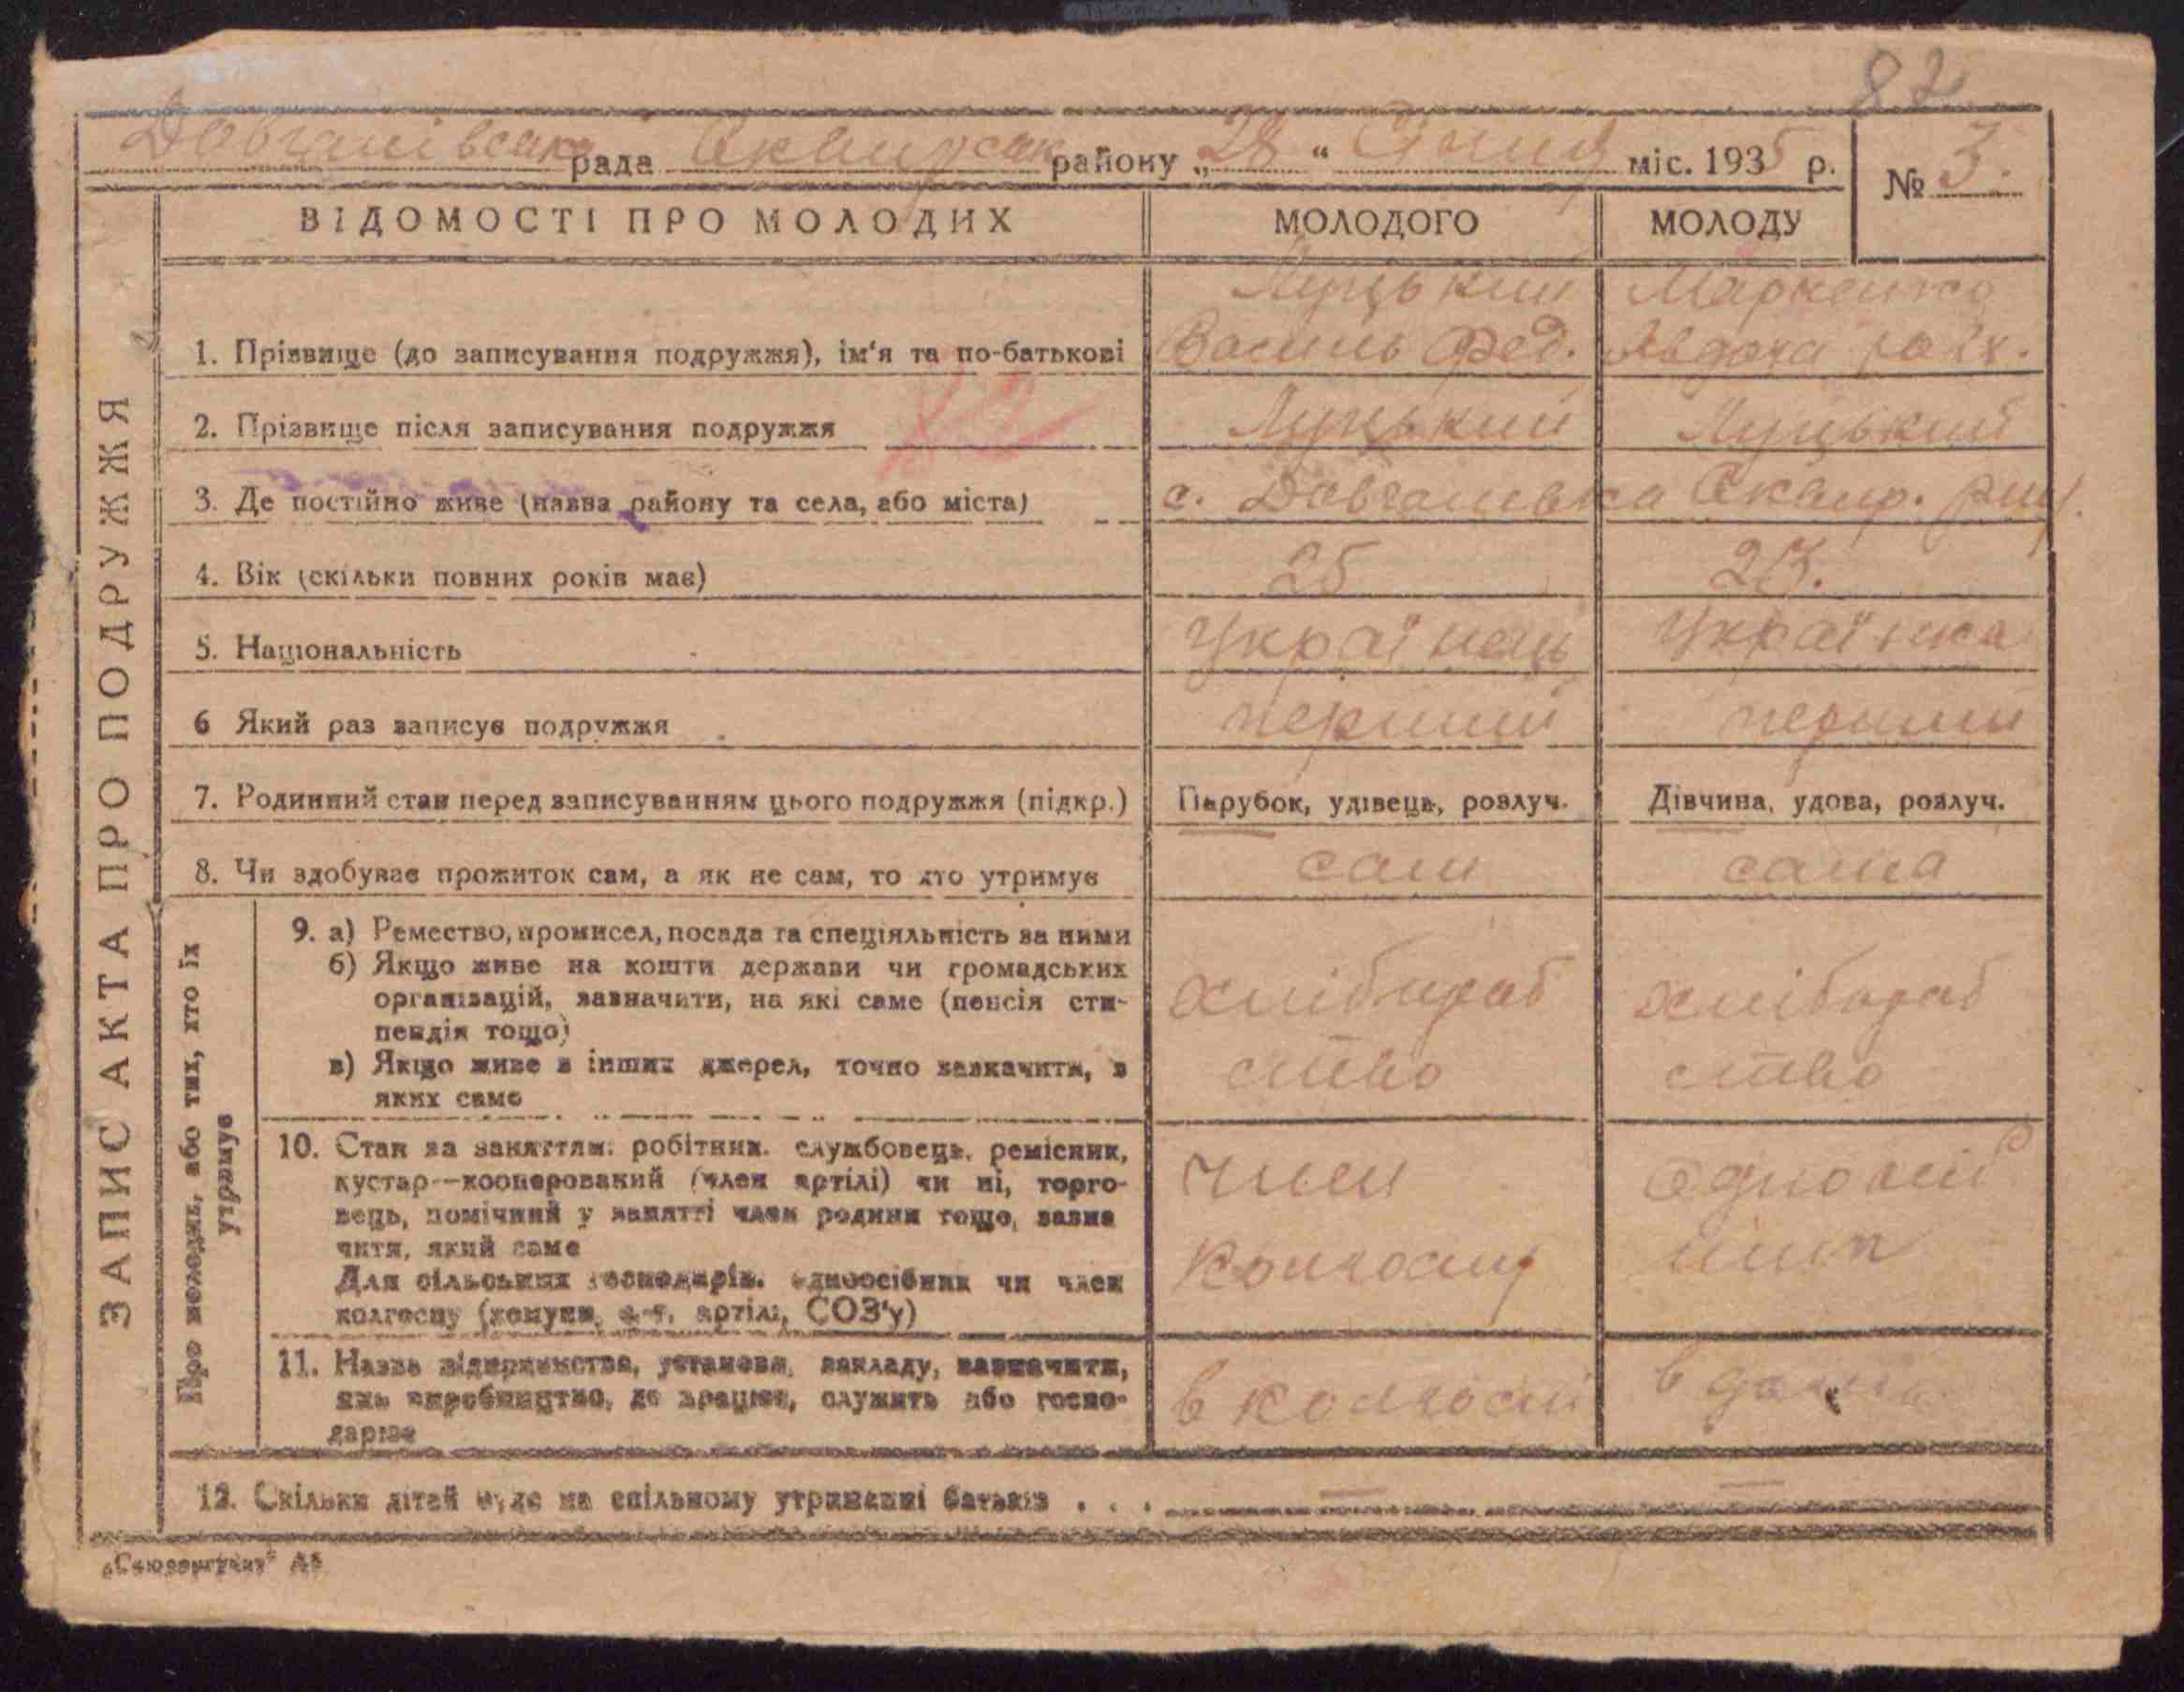 82
Довганівська рада Сквирськ району „28“ Січня міс. 1935 р.
№ 3.
ВІДОМОСТІ ПРО МОЛОДИХ МОЛОДОГО МОЛОДУ
ЗАПИС АКТА ПРО ПОДРУЖЖЯ
Луцький Марченко
1. Прізвище (до записування подружжя), ім'я та по-батькові Василь Фед. Явдоха
2. Прізвище після записування подружжя Луцький Луцький
82
3. Де постійно живе (назва району та села, або міста) с. Довгалівка Сквир. рай.
4. Вік (скільки повних років має) 25 23.
5. Національність Українець Українка
6 Який раз записує подружжя перший перший
7. Родинний стан перед записуванням цього подружжя (підкр.) Парубок, удівець, розлуч. Дівчина, удова, розлуч.
8. Чи здобуває прожиток сам, а як не сам, то хто утримує сам сама
Про молодих, або тих, хто їх
утримує
9. а) Ремество, промисел, посада та спеціяльність за ними
б) Якщо живе на кошти держави чи громадських
організацій, зазначити, на які саме (пенсія сти-
пендія тощо)
в) Якщо живе з інших джерел, точно зазначити, з
яких само
хлібороб хлібороб
ство ство
10. Стан за заняттям: робітник, службовець, ремісник,
кустар--кооперований (член артілі) чи ні, торго-
вець, помічний у занятті член родини тощо, зазна
чити, який саме
Для сільських господарів. одноосібник чи член
колгоспу (комуни, с-г. артілі, СОЗ'у)
член
колгоспу
11. Назва підприємства, установи, закладу, зазначити,
яке виробництво, де працює, служить або госпо-
дарює
в колгоспі в дома
12. Скільки дітей буде на спільному утриманні батьків . . . — —